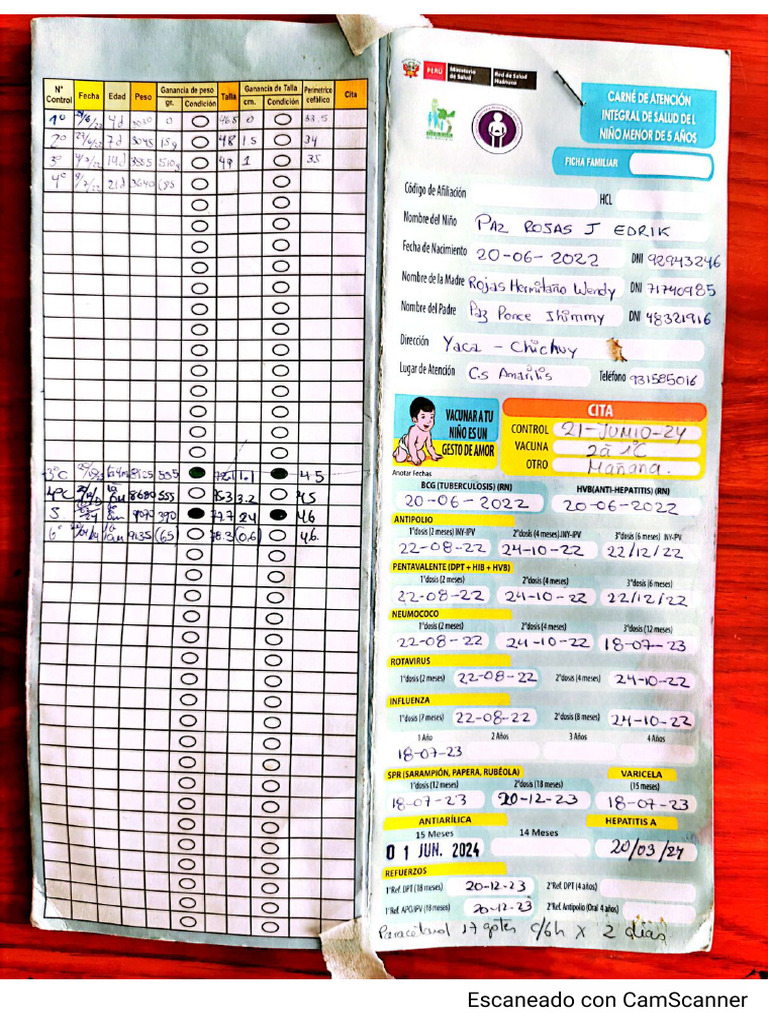 N° Control Fecha Edad Peso Ganancia de peso gr. Condición Talla Ganancia de Talla cm. Condición Perimetrico cefálico Cita
1° 4d 3030 0 46.5 0 33.5
2° 7d 3045 15g 48 1.5 34
3° 14d 3555 510g 49 1 35
4° 21d 3640 (85
3°C 45
4°C 8680 555 75.3 3.2 45
5 9070 390 77.7 24 46
6° 9135 (65 78.3 (0.6) 46.
PERÚ Ministerio de Salud Red de Salud Huánuco
CARNÉ DE ATENCIÓN
INTEGRAL DE SALUD DE L
NIÑO MENOR DE 5 AÑOS
FICHA FAMILIAR
Código de Afiliación HCL
Nombre del Niño PAZ ROJAS J EDRIK
Fecha de Nacimiento 20-06-2022 DNI 92943246
Nombre de la Madre Rojas Hermitaño Wendy DNI 71740985
Nombre del Padre Paz Ponce Jhimmy DNI 48321916
Dirección Yaca - Chichuy
Lugar de Atención C.s Amarilis Teléfono 931585016
VACUNAR A TU
NIÑO ES UN
GESTO DE AMOR
CITA
CONTROL 21-JUNIO-24
VACUNA
OTRO Mañana.
Anotar Fechas
BCG (TUBERCULOSIS) (RN) HVB(ANTI-HEPATITIS) (RN)
20-06-2022 20-06-2022
ANTIPOLIO
1°dosis (2 meses) INY-IPV 2°dosis (4 meses) INY-IPV 3°dosis (6 meses) INY-IPV
22-08-22 24-10-22 22/12/22
PENTAVALENTE (DPT + HIB + HVB)
1°dosis (2 meses) 2°dosis (4 meses) 3°dosis (6 meses)
22-08-22 24-10-22 22/12/22
NEUMOCOCO
1°dosis (2 meses) 2°dosis (4 meses) 3°dosis (12 meses)
22-08-22 24-10-22 18-07-23
ROTAVIRUS
1°dosis (2 meses) 22-08-22 2°dosis (4 meses) 24-10-22
INFLUENZA
1°dosis (7 meses) 22-08-22 2°dosis (8 meses) 24-10-22
1 Año 2 Años 3 Años 4 Años
18-07-23
SPR (SARAMPIÓN, PAPERA, RUBÉOLA) VARICELA
1°dosis (12 meses) 2°dosis (18 meses) (15 meses)
18-07-23 20-12-23 18-07-23
ANTIARÍLICA HEPATITIS A
15 Meses 14 Meses
01 JUN. 2024 20/03/24
REFUERZOS
1°Ref. DPT (18 meses) 20-12-23 2°Ref. DPT (4 años)
1°Ref. APO/IPV (18 meses) 20-12-23 2°Ref. Antipolio (Oral 4 años)
Paracetmol 17 gotas c/6h x 2 días
Escaneado con CamScanner